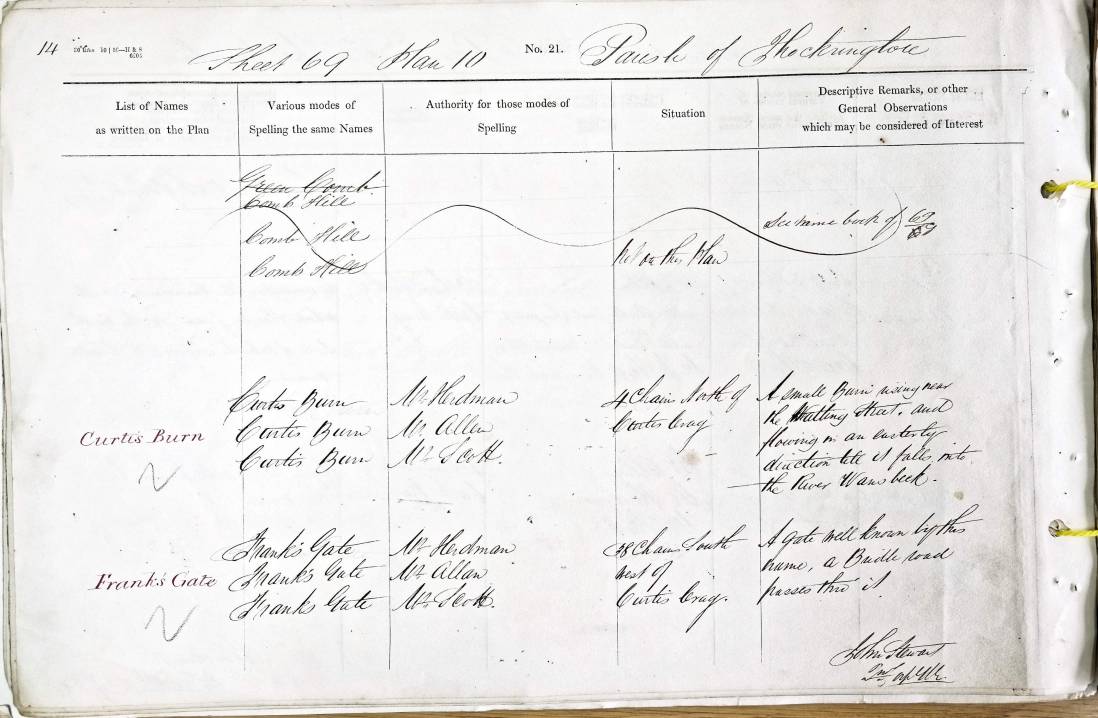 14
No. 21.
Sheet 69 Plan 10 Parish of Thockrington
List of Names
as written on the Plan
Various modes of
Spelling the same Names
Authority for those modes of
Spelling
Situation
Descriptive Remarks, or other
General Observations
which may be considered of Interest
Green Comb
Comb Hill
Comb Hill
Comb Hill
Not on this Plan
See name book of 69
Curtis Burn
Curtis Burn
Curtis Burn
Curtis Burn
Mr. Herdman
Mr. Allen
Mr. Scott.
4 Chains North of
Curtis Crag
A small Burn rising near
the Watling Street. and
flowing in an easterly
direction till it falls into
the River Wansbeck.
Frank's Gate
Frank's Gate
Frank's Gate
Frank's Gate
Mr. Herdman
Mr. Allan
Mr. Scott.
38 Chains South
West of
Curtis Crag.
A Gate well known by this
name, a Bridle road
passes thro' it.
John Stewart